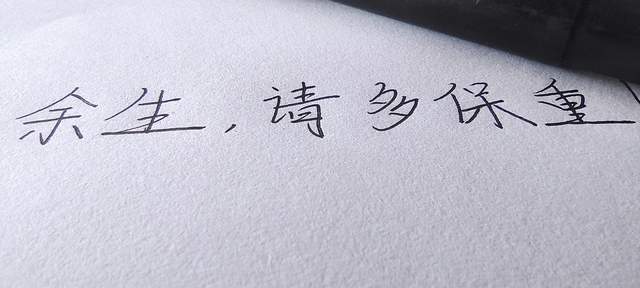 余生，请多保重